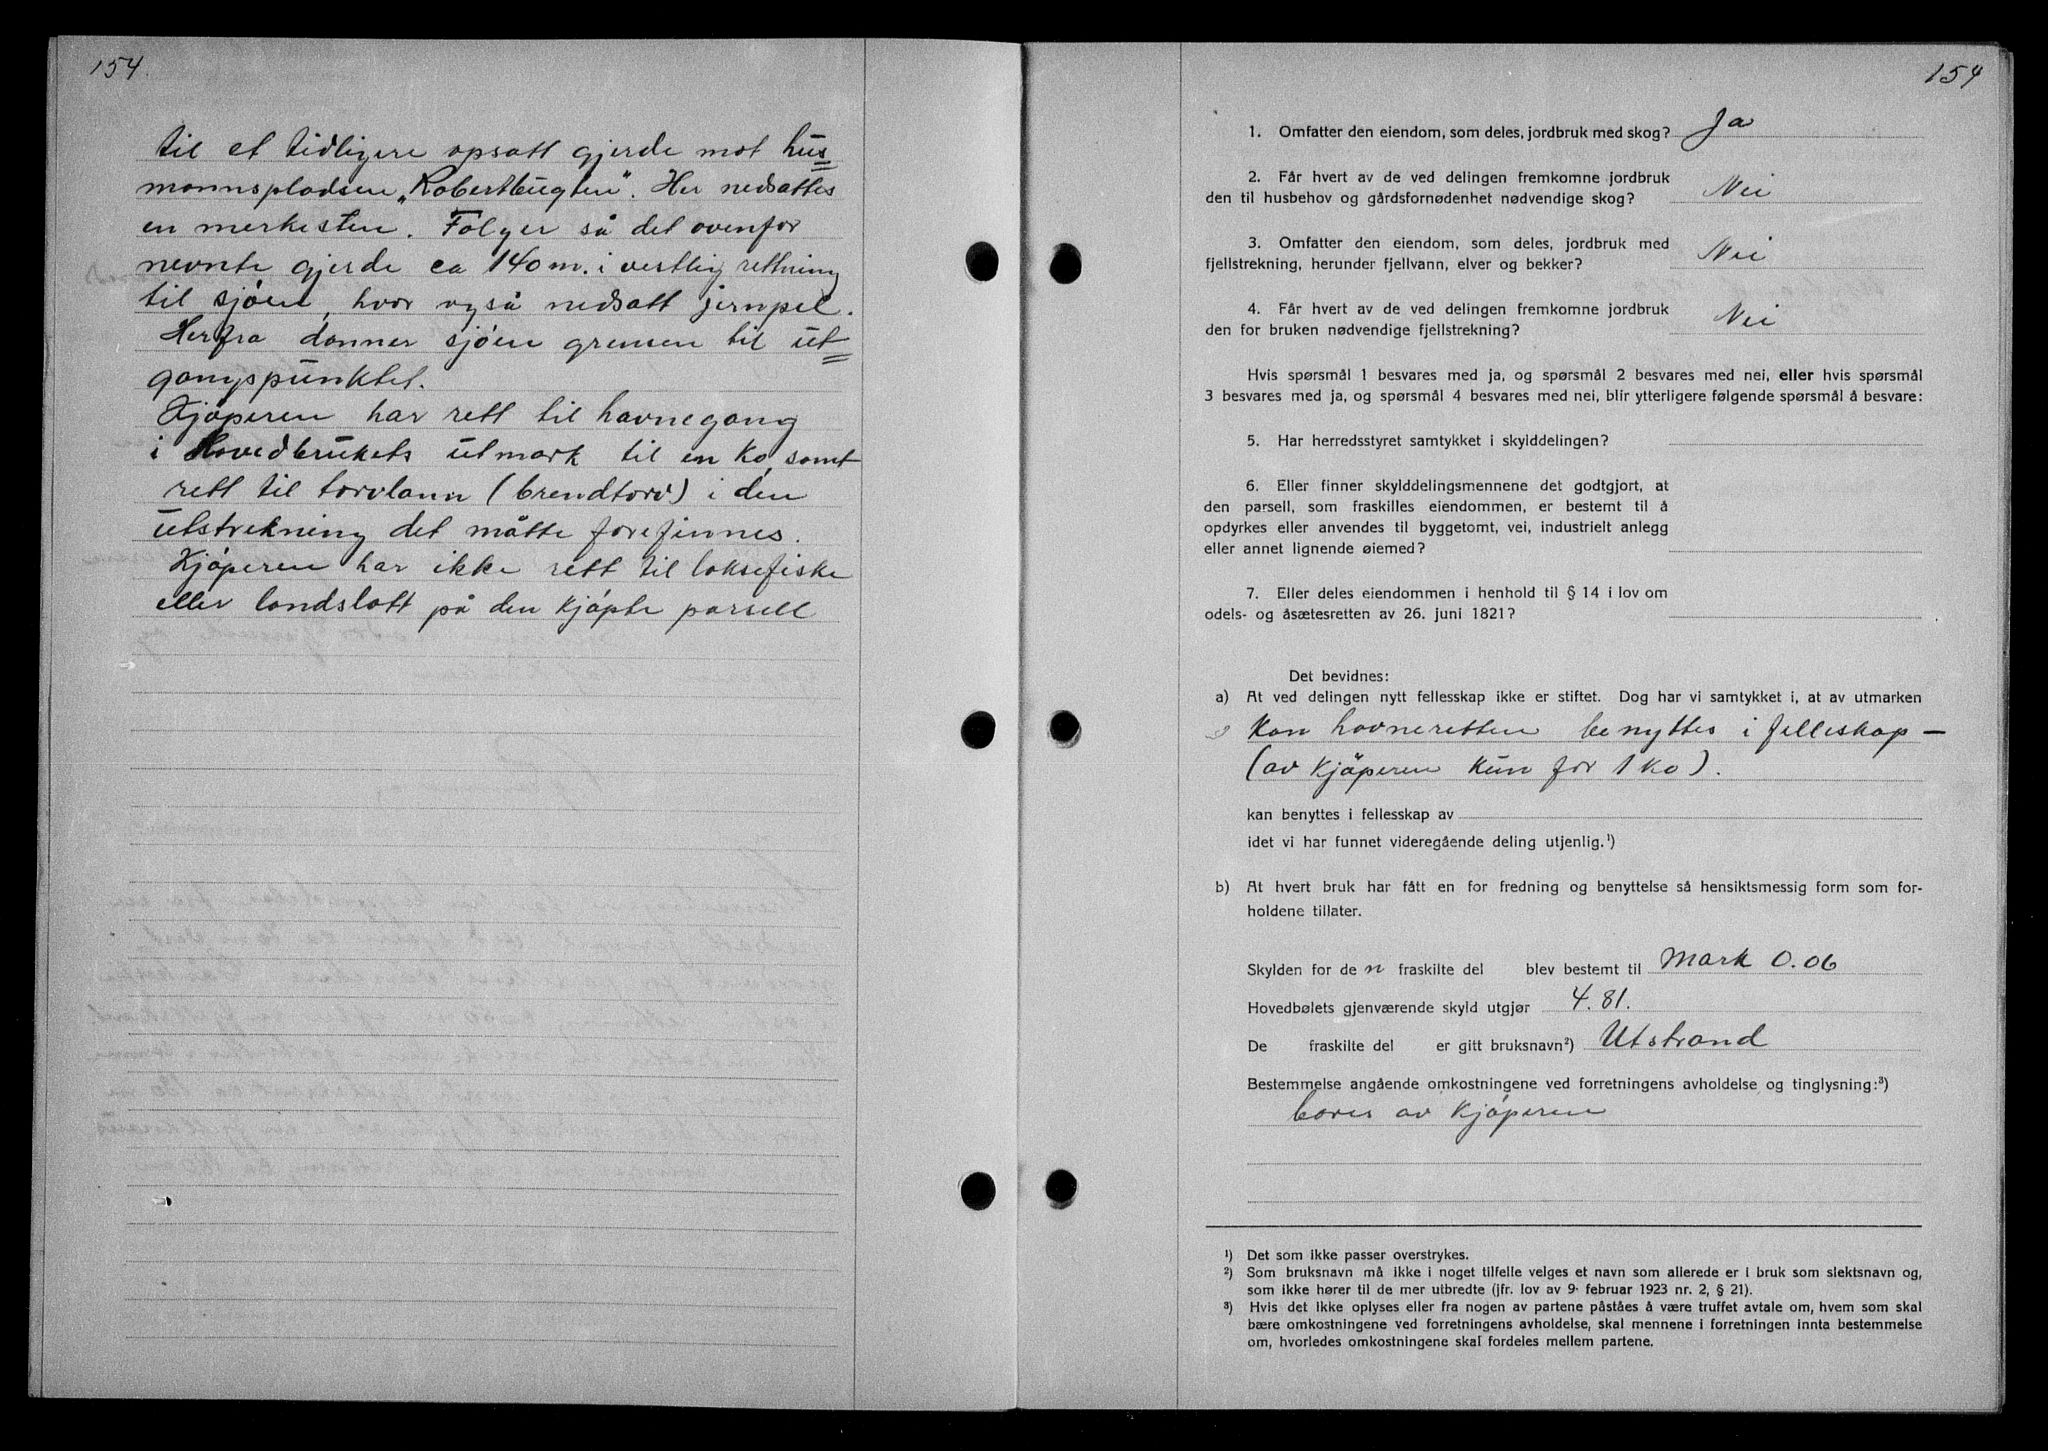 154.
til et tidligere opsatt gjerde mot hus=
mannspladsen „Robertbugten". Her nedsattes
en merkesten. Følger så det ovenfor
nevnte gjerde ca 140 m. i vestlig rettning
til sjøen, hvor også nedsatt jernpel.
Herfra danner sjøen grensen til ut=
gangspunktet.
Kjøperen har rett til havnegang
i Hovedbrukets utmark til en ko, samt
rett til torvlann (brendtorv) i den
utstrekning det måtte forefinnes.
Kjøperen har ikke rett til laksefiske
eller landslott på den kjøpte parsell
154
1. Omfatter den eiendom, som deles, jordbruk med skog? Ja
2. Får hvert av de ved delingen fremkomne jordbruk
den til husbehov og gårdsfornødenhet nødvendige skog? Nei
3. Omfatter den eiendom, som deles, jordbruk med
fjellstrekning, herunder fjellvann, elver og bekker? Nei
4. Får hvert av de ved delingen fremkomne jordbruk
den for bruken nødvendige fjellstrekning? Nei
Hvis spørsmål 1 besvares med ja, og spørsmål 2 besvares med nei, eller hvis spørsmål
3 besvares med ja, og spørsmål 4 besvares med nei, blir ytterligere følgende spørsmål å besvare:
5. Har herredsstyret samtykket i skylddelingen?
6. Eller finner skylddelingsmennene det godtgjort, at
den parsell, som fraskilles eiendommen, er bestemt til å
opdyrkes eller anvendes til byggetomt, vei, industrielt anlegg
eller annet lignende øiemed?
7. Eller deles eiendommen i henhold til § 14 i lov om
odels- og åsætesretten av 26. juni 1821?
Det bevidnes:
a) At ved delingen nytt fellesskap ikke er stiftet. Dog har vi samtykket i, at av utmarken
kan havneretten benyttes i felleskap —
(av kjøperen kun for 1 ko).
kan benyttes i fellesskap av
idet vi har funnet videregående deling utjenlig.¹)
b) At hvert bruk har fått en for fredning og benyttelse så hensiktsmessig form som for-
holdene tillater.
Skylden for de n fraskilte del blev bestemt til Mark 0.06
Hovedbølets gjenværende skyld utgjør 4.81.
De fraskilte del er gitt bruksnavn²) Utstrand
Bestemmelse angående omkostningene ved forretningens avholdelse og tinglysning:³)
bæres av kjøperen
¹) Det som ikke passer overstrykes.
²) Som bruksnavn må ikke i noget tilfelle velges et navn som allerede er i bruk som slektsnavn og,
som ikke hører til de mer utbredte (jfr. lov av 9. februar 1923 nr. 2, § 21).
³) Hvis det ikke oplyses eller fra nogen av partene påståes å være truffet avtale om, hvem som skal
bære omkostningene ved forretningens avholdelse, skal mennene i forretningen innta bestemmelse
om, hvorledes omkostningene skal fordeles mellem partene.